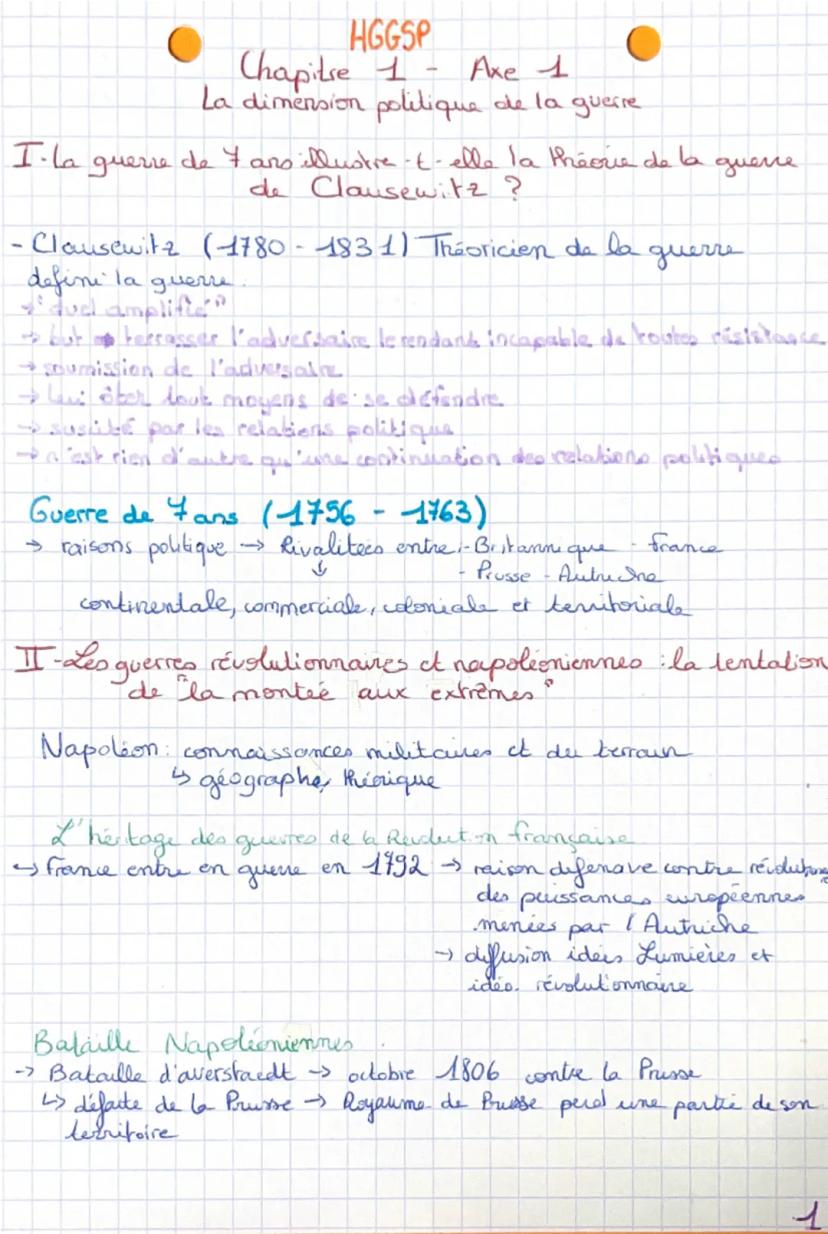 HGGSP
Chapitre 1 - Axe 1
La dimension politique de la guerre
I-La guerre de 7 ans illustre-t-elle la théorie de la guerre
de Clausewitz ?
- Clausewitz (1780 - 1831) Théoricien de la guerre
défini la guerre :
→ "duel amplifié"
→ but → terrasser l'adversaire le rendant incapable de toutes résistance
→ soumission de l'adversaire
→ lui ôter tout moyens de se défendre
→ suscité par les relations politique
→ n'est rien d'autre qu'une continuation des relations politiques
Guerre de 7 ans (1756 - 1763)
→ raisons politique → Rivalitées entre :- Britannique - France
↓ - Prusse - Autriche
continentale, commerciale, coloniale et territoriale
II-Les guerres révolutionnaires et napoléoniennes : la tentation
de "la montée aux extrêmes"
Napoléon : connaissances militaires et du terrain
↳ géographe, théorique
L'héritage des guerres de la Révolution française
↪ France entre en guerre en 1792 → raison défensive contre révolutions
des puissances européennes
menées par l'Autriche
→ diffusion idées Lumières et
idéo. révolutionnaire
Bataille Napoléoniennes
-> Bataille d'averstaedt → octobre 1806 contre la Prusse
↳ défaite de la Prusse → Royaume de Prusse perd une partie de son
territoire
1